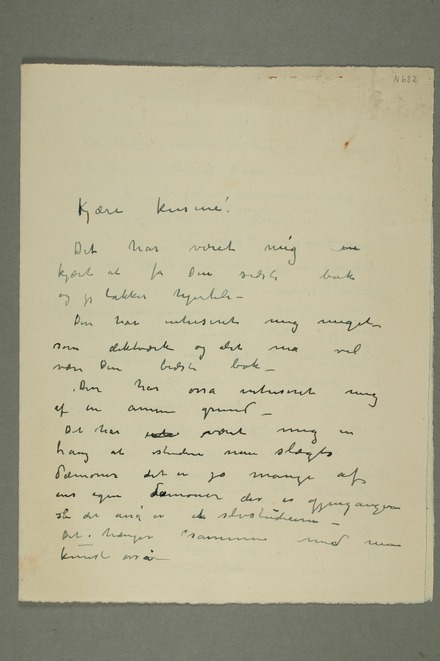 N 682
Kjære kusine!
Det har været mig en
kjært at få Din sidste bok
og jeg takker hjerteli –
Den har interesseret mig meget
som diktværk og det må vel
være Din bedste bok –
Den har også interesseret mig
af en annen grund –
Det har været mig en
trang at studere min slægts
Dæmoner det er jo mange af
ens egne dæmoner der er gjengangere
så det også er et selvstudium –
Det hænger sammen med min
kunst også